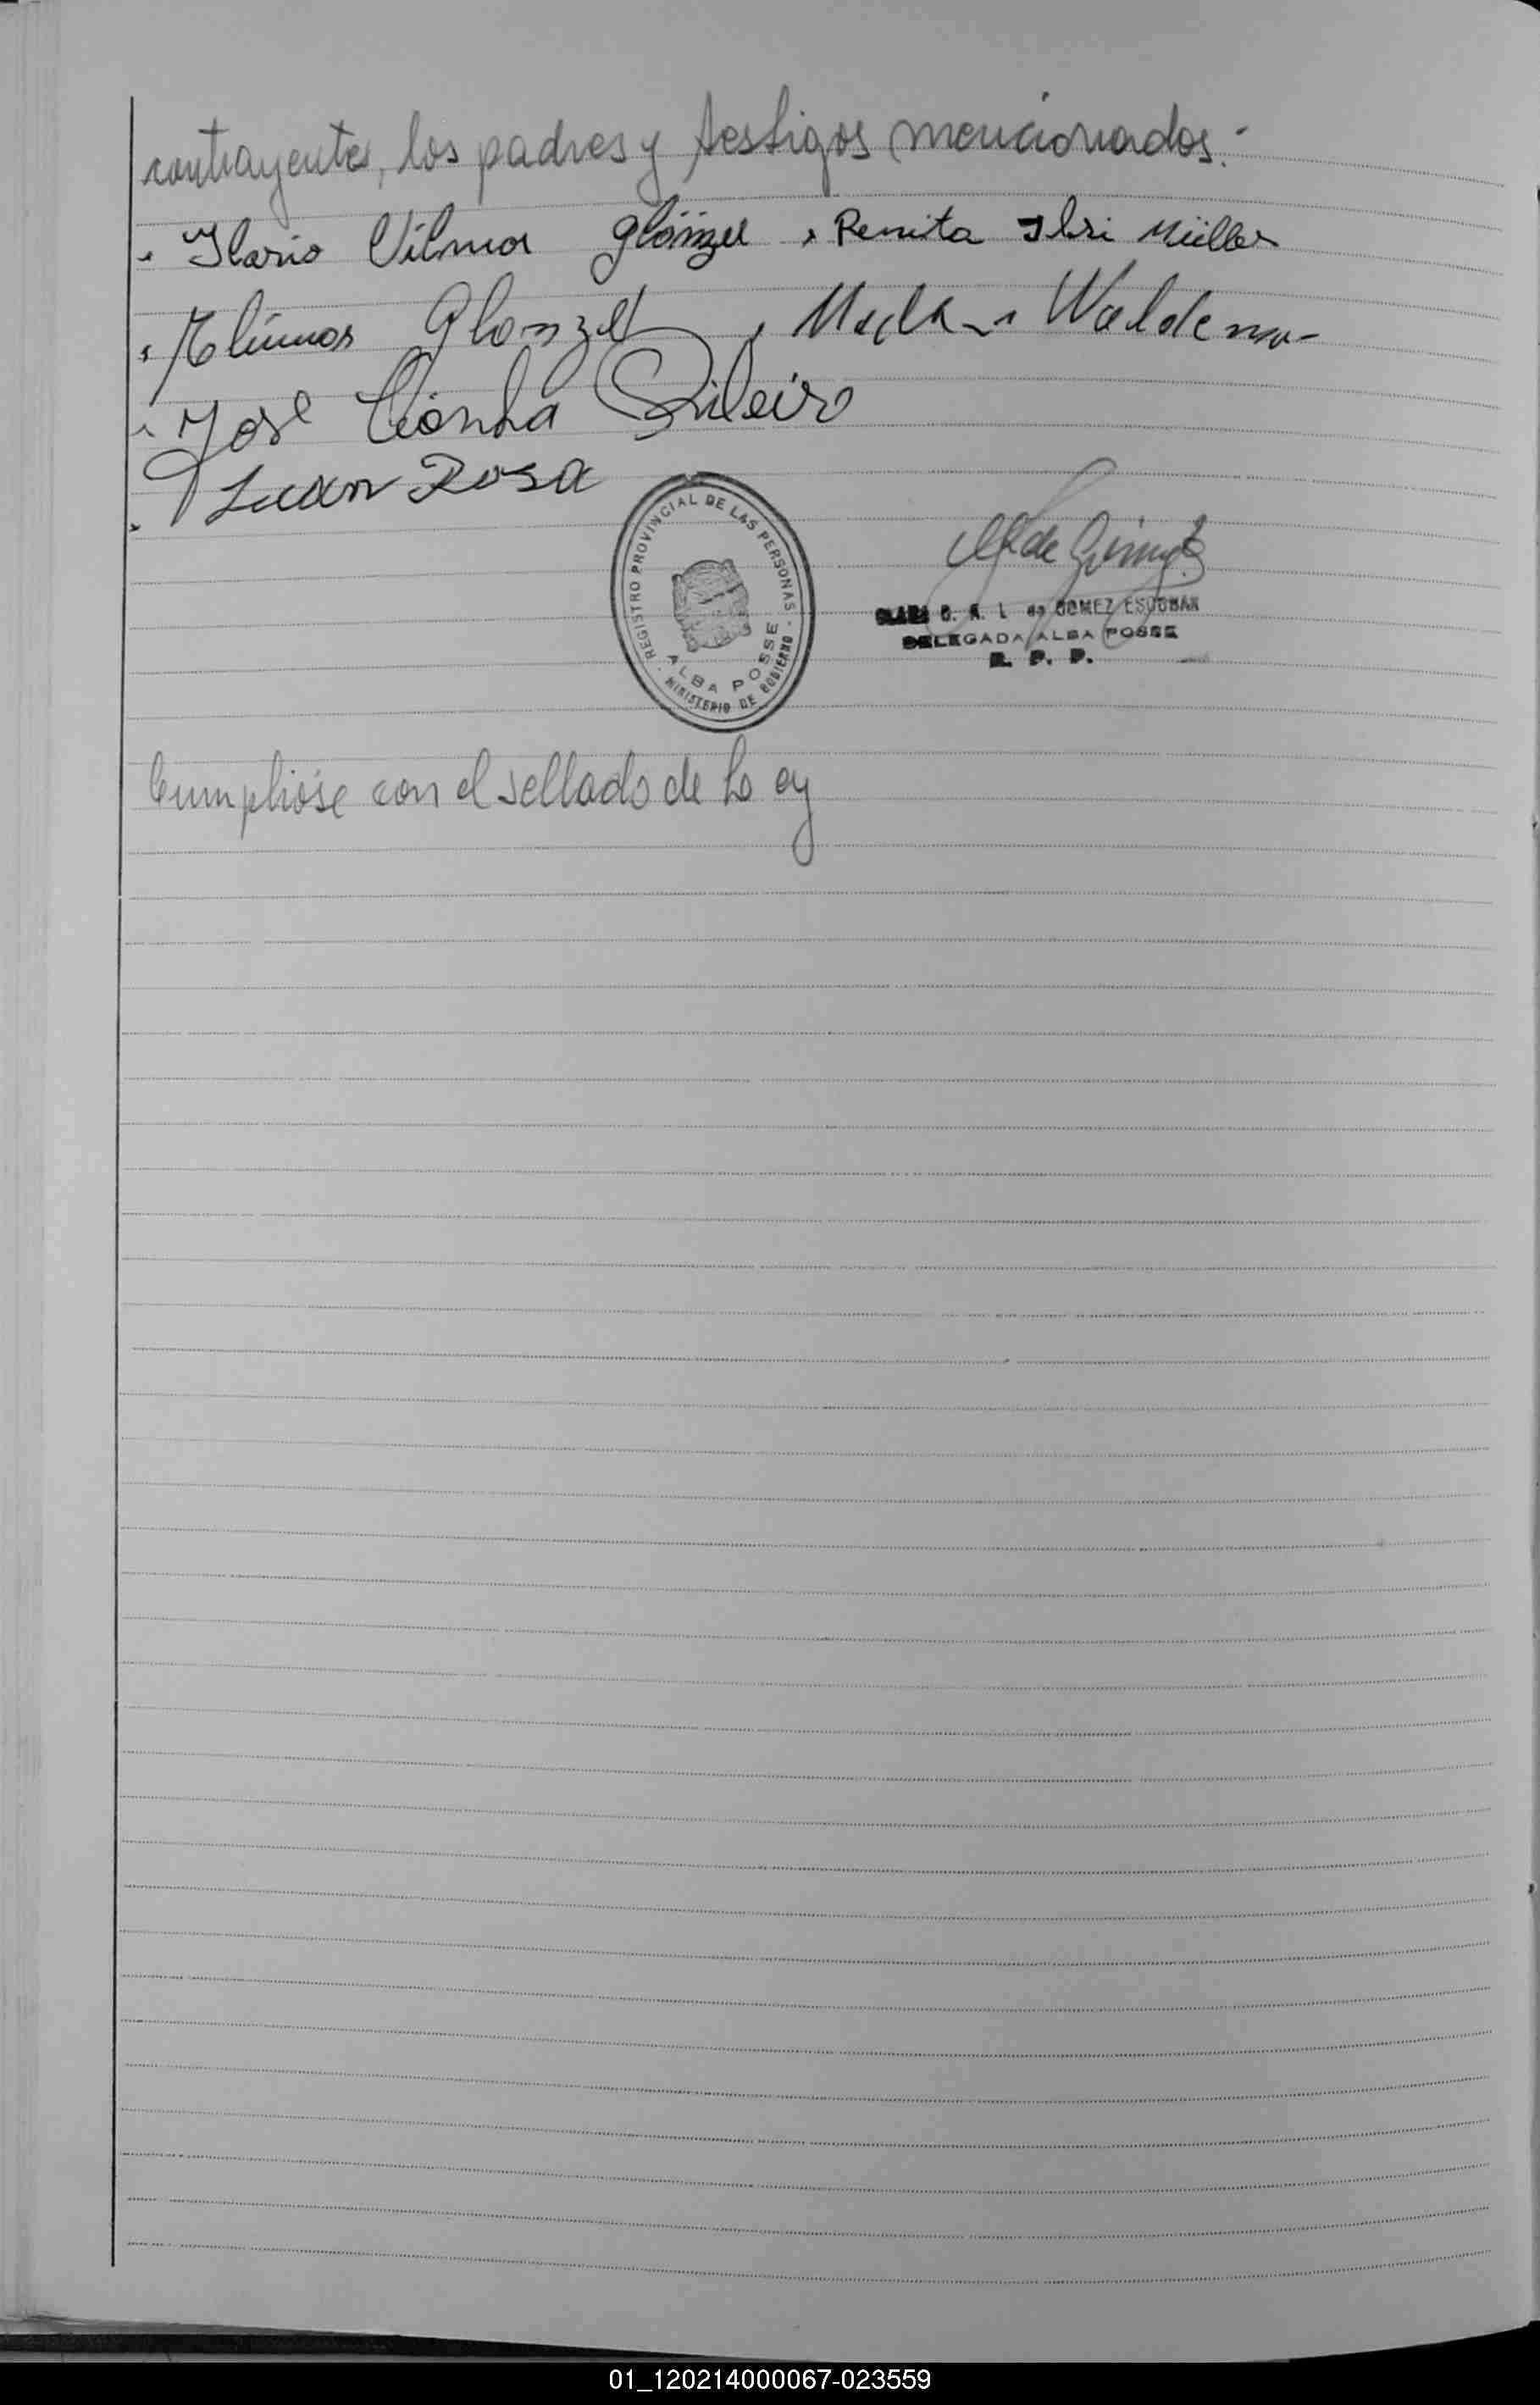 contrayentes, los padres y testigos mencionados.-
Ilario Vilmar Glänzel, Renita Ilsi Müller
Glanzel, Waldemar
José Ribeiro
Juan Rosa
REGISTRO PROVINCIAL DE LAS PERSONAS
ALBA POSSE
MINISTERIO DE GOBIERNO
de GOMEZ ESCOBAR
DELEGADA ALBA POSSE
R. P. P.
Cumplióse con el sellado de Ley
01_120214000067-023559